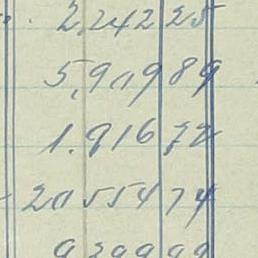 2,242 25
5,919 89
1.916 72
20554 74
9 299 99